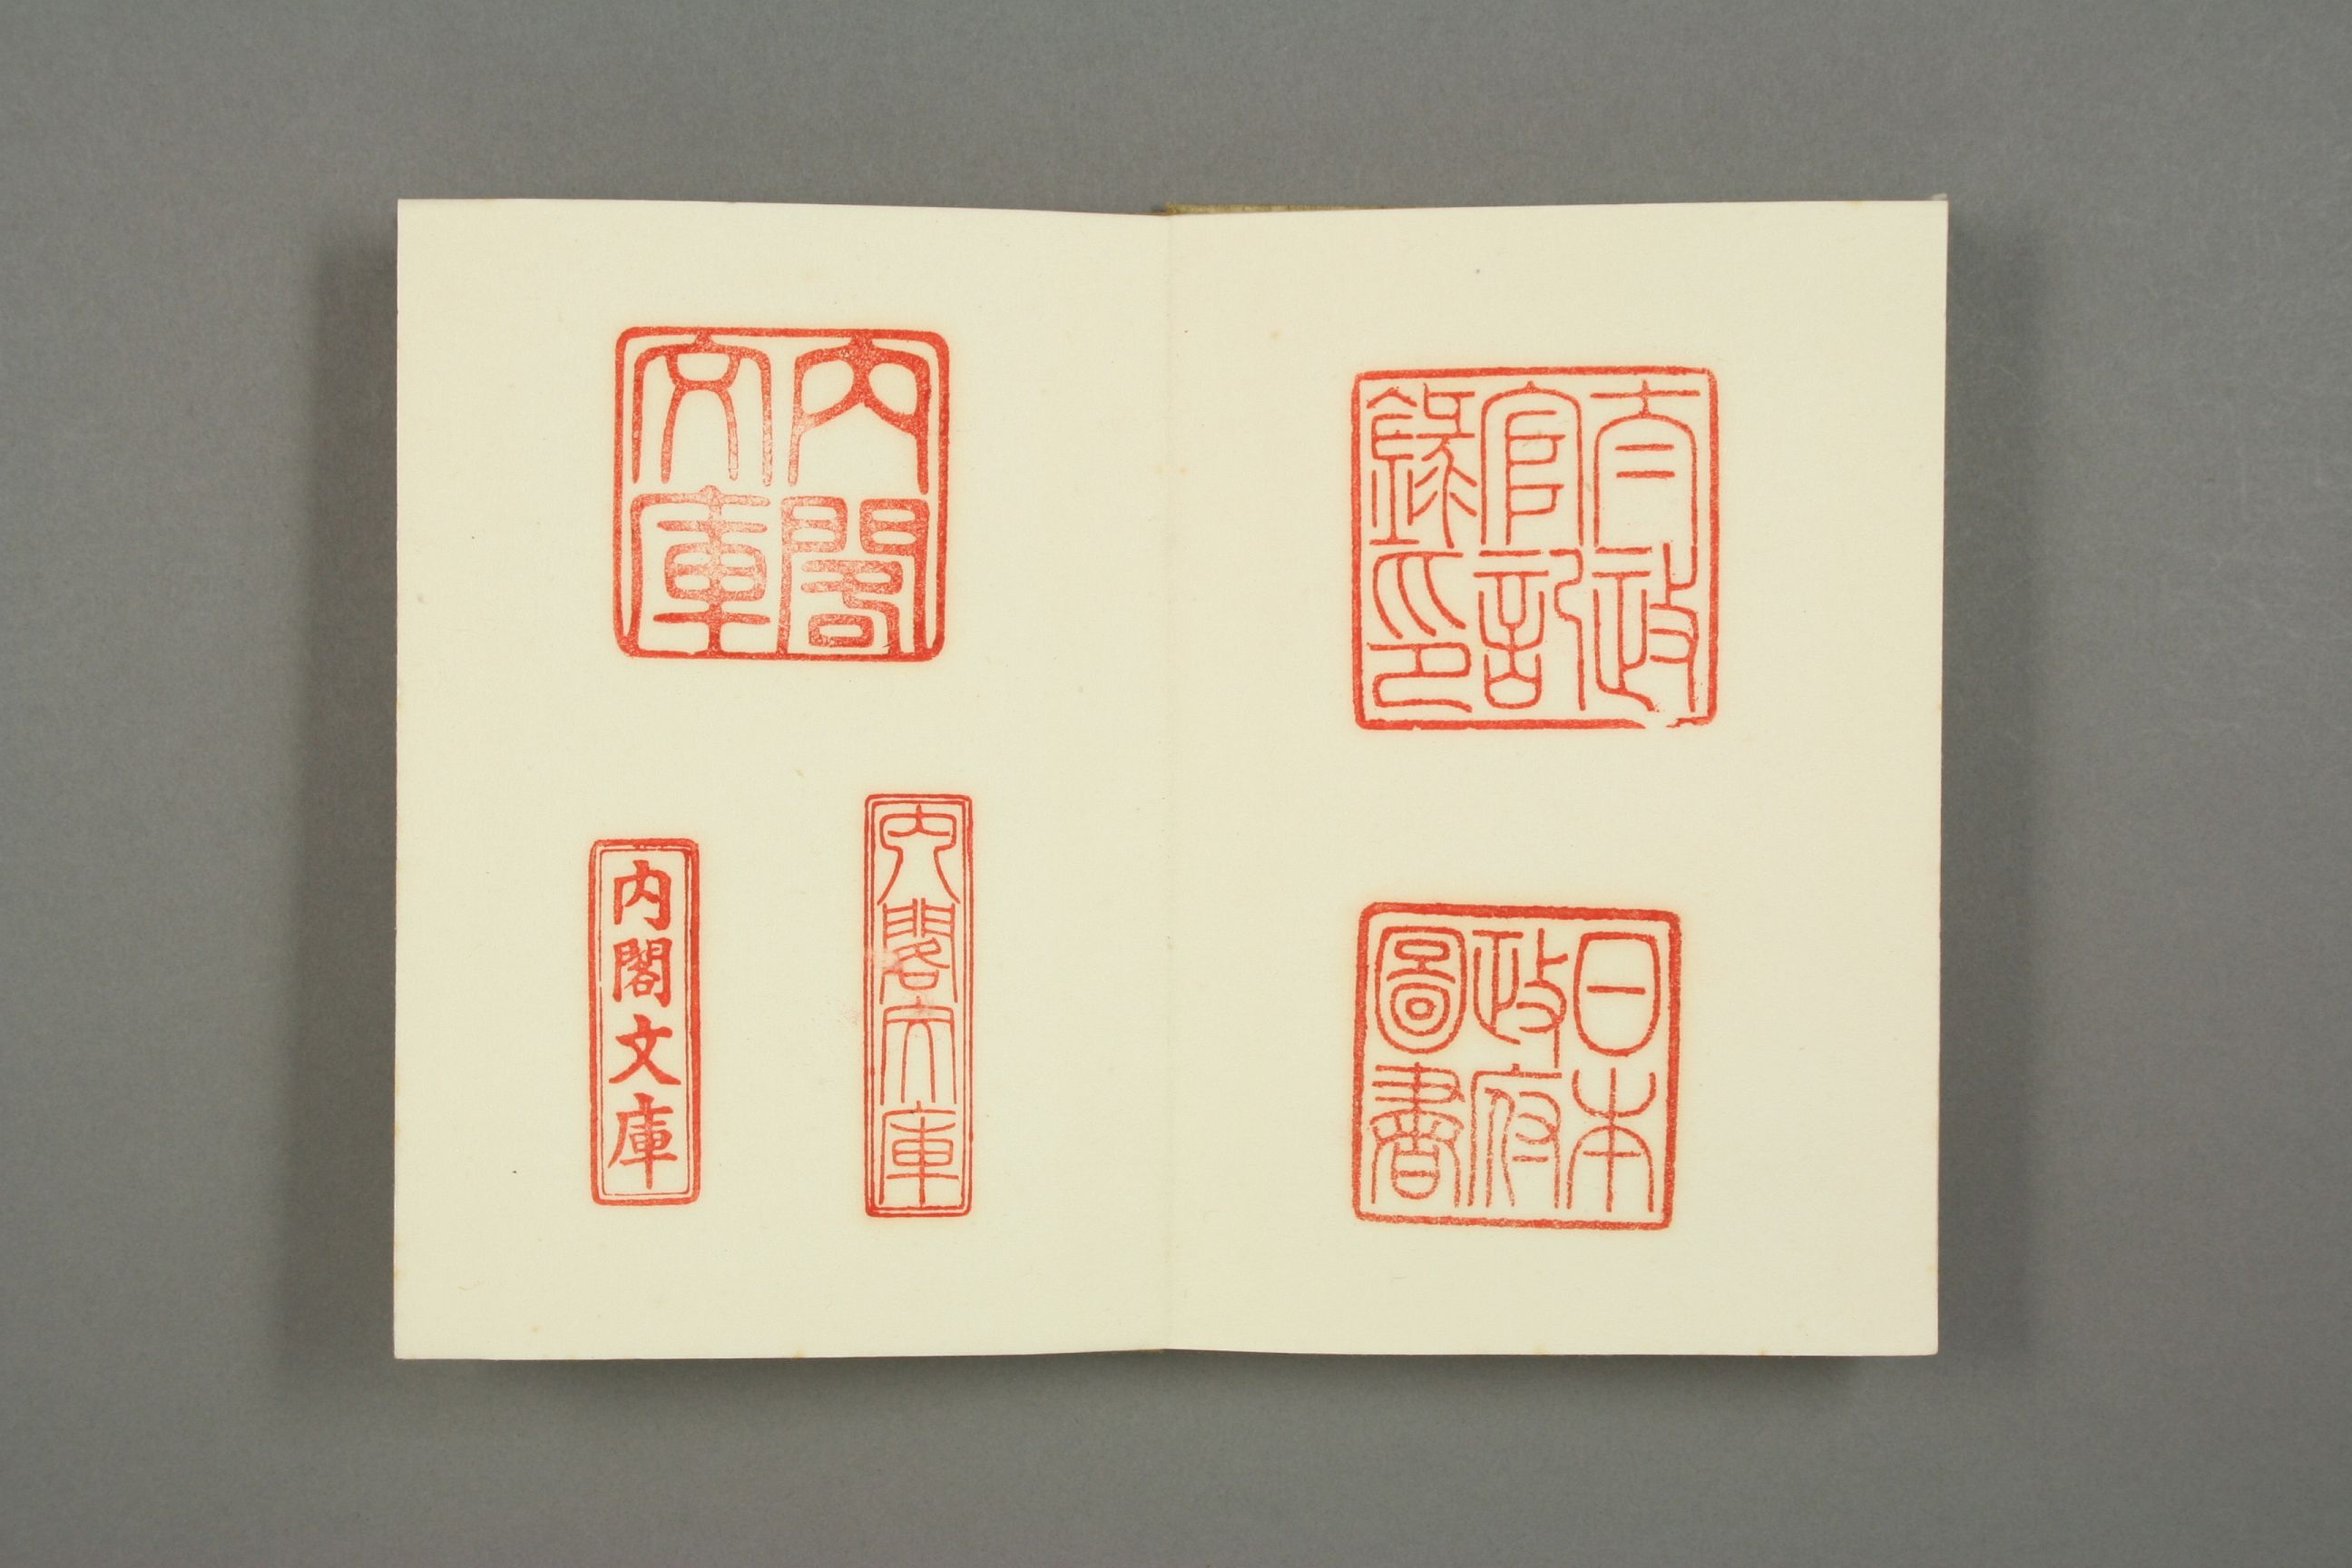 太政
官記
錄印
日本
政府
圖書
内閣
文庫
内閣文庫
内閣文庫